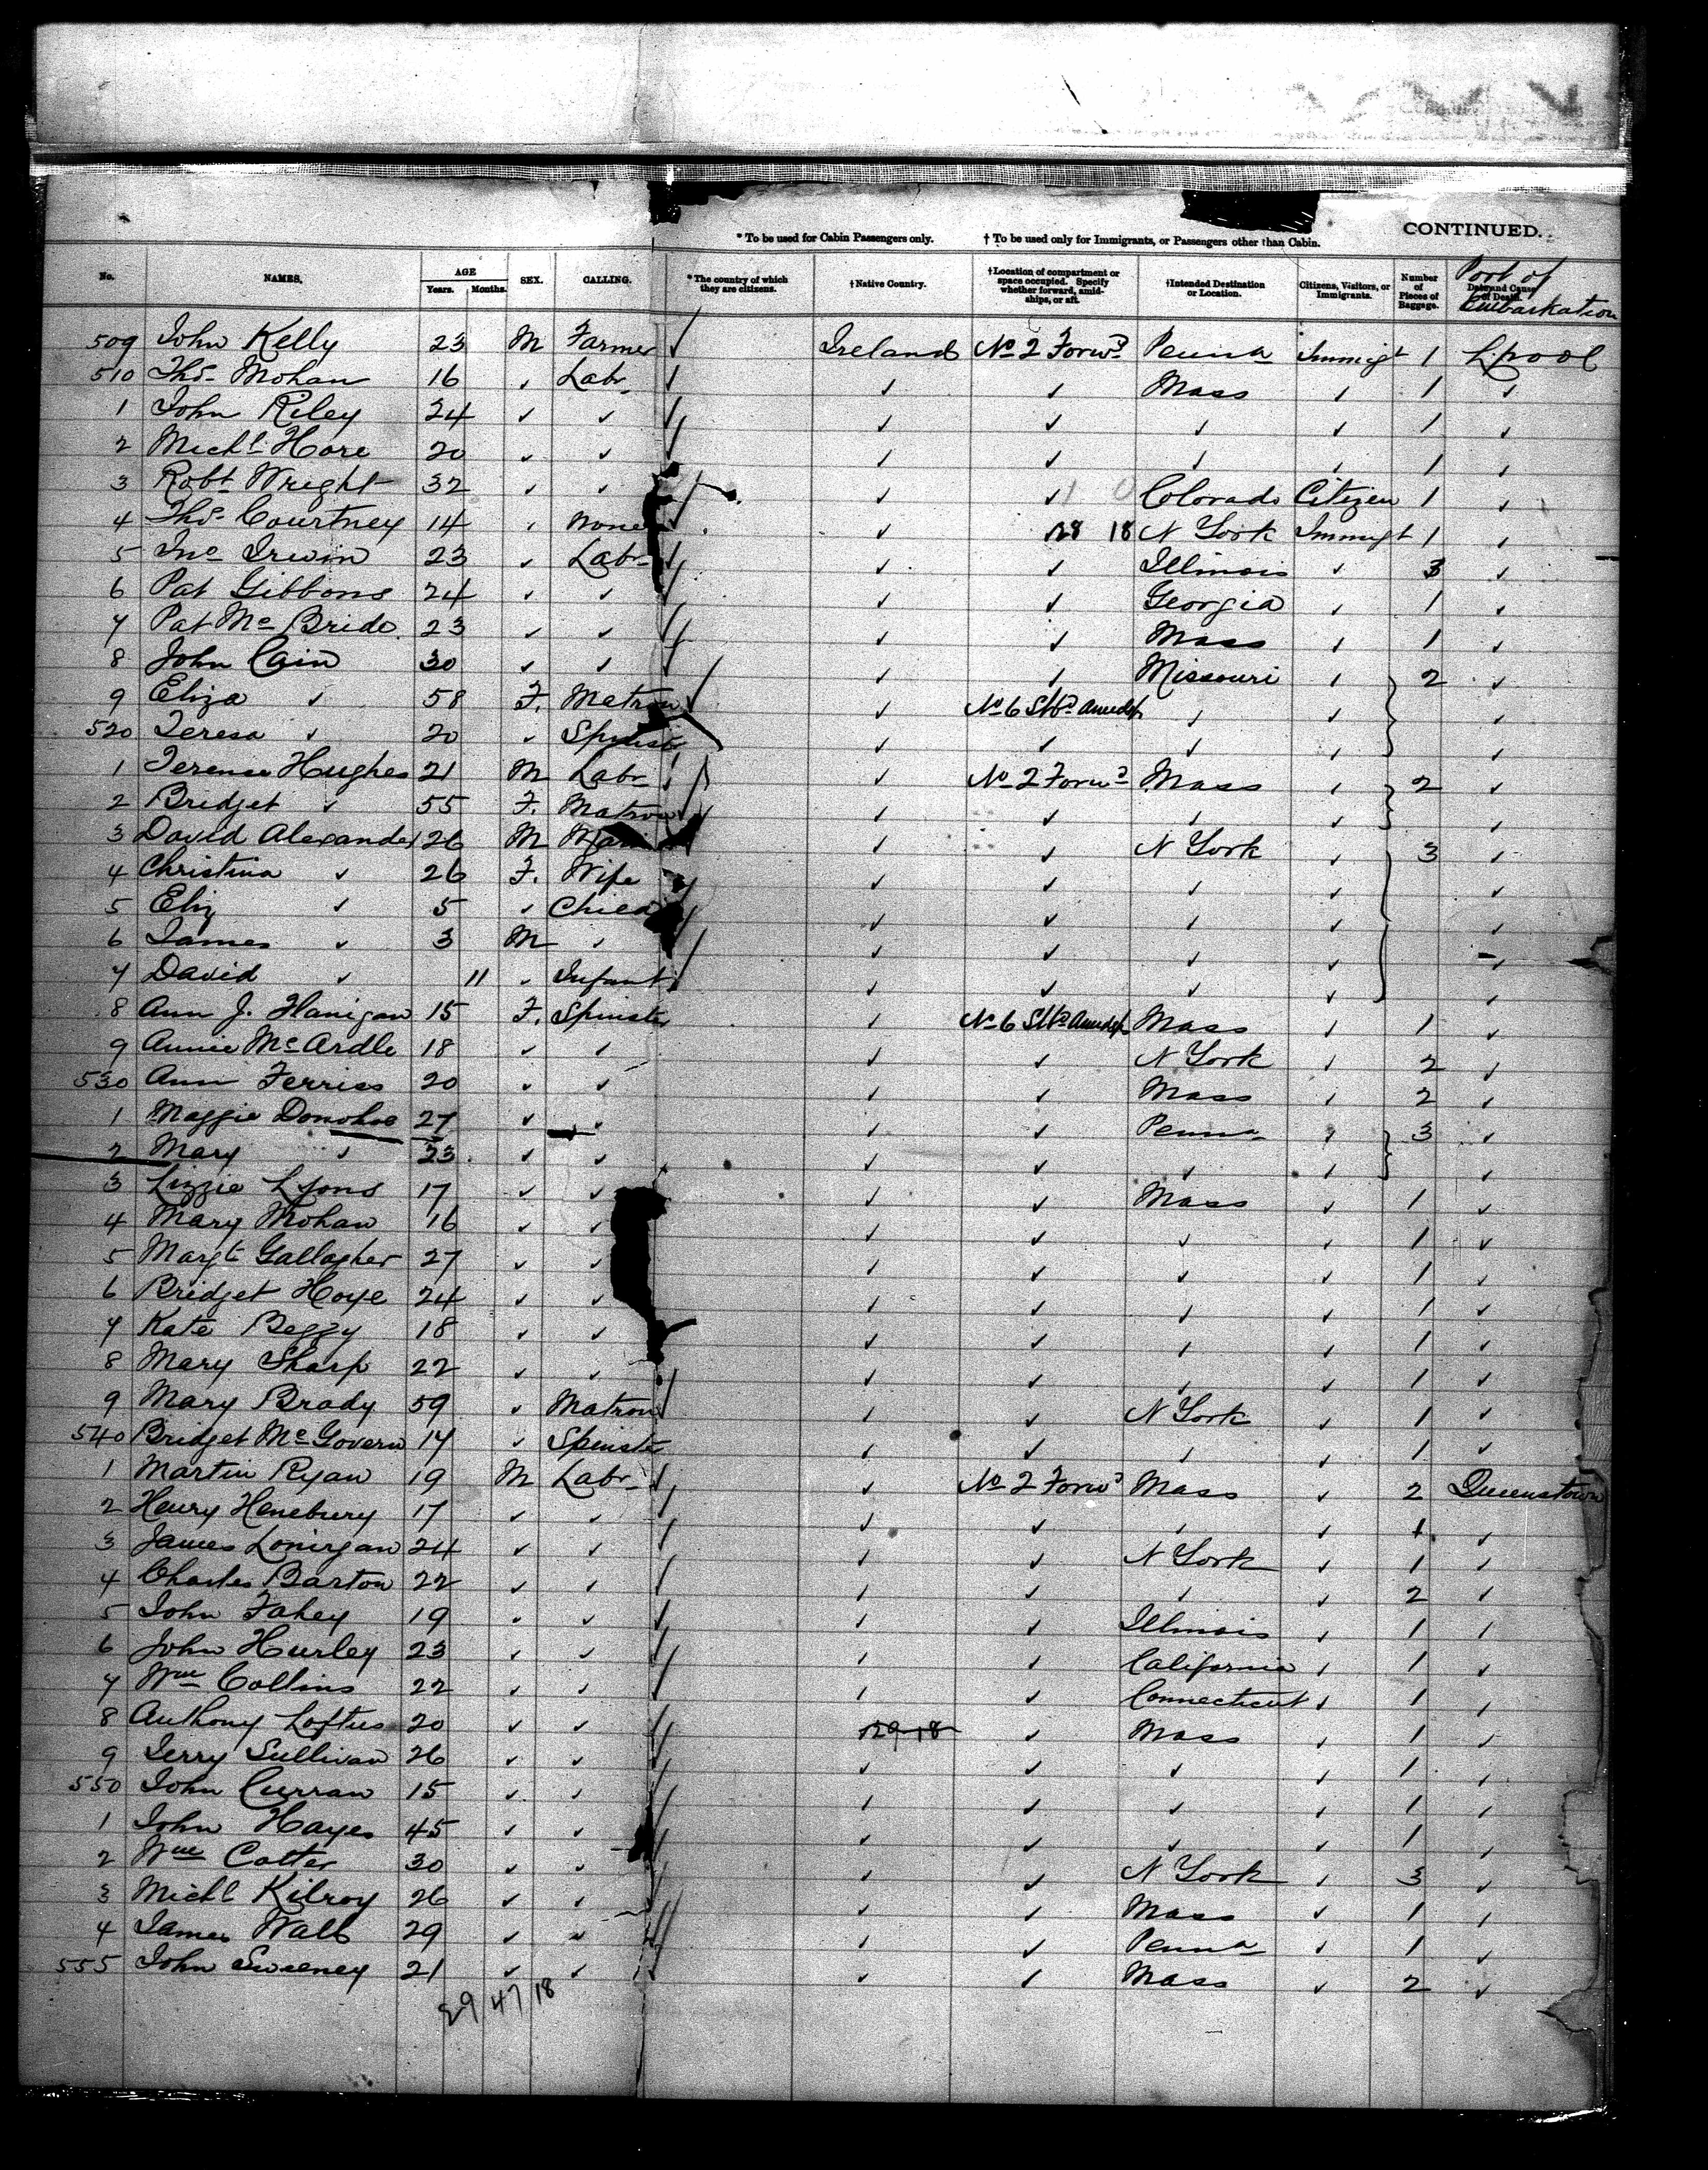 CONTINUED.
* To be used for Cabin Passengers only. † To be used only for Immigrants, or Passengers other than Cabin.
No. NAMES. AGE Years. Months. SEX. CALLING. * The country of which they are citizens. † Native Country. † Location of compartment or space occupied. Specify whether forward, amidships, or aft. † Intended Destination or Location. Citizens, Visitors, or Immigrants. Number of Pieces of Baggage. Date and Cause of Death. Port of Embarkation
509 John Kelly 23 M Farmer ✓ Ireland No 2 Forwd Penna Immigt 1 Lpool
510 Thos Mohan 16 ✓ Labr ✓ ✓ ✓ Mass ✓ 1 ✓
1 John Riley 24 ✓ ✓ ✓ ✓ ✓ ✓ ✓ 1 ✓
2 Michl Hore 20 ✓ ✓ ✓ ✓ ✓ ✓ ✓ 1 ✓
3 Robt Wright 32 ✓ ✓ ✓ ✓ ✓ Colorado Citizen 1 ✓
4 Thos Courtney 14 ✓ None ✓ ✓ 18 N York Immigt 1 ✓
5 Jno Irwin 23 ✓ Labr ✓ ✓ ✓ Illinois ✓ 3 ✓
6 Pat Gibbons 24 ✓ ✓ ✓ ✓ ✓ Georgia ✓ 1 ✓
7 Pat Mc Bride 23 ✓ ✓ ✓ ✓ ✓ Mass ✓ 1 ✓
8 John Cain 30 ✓ ✓ ✓ ✓ ✓ Missouri ✓ 2 ✓
9 Eliza ✓ 58 F. Matron ✓ ✓ No 6 ✓ ✓ ✓
520 Teresa ✓ 20 ✓ Spinster ✓ ✓ ✓ ✓ ✓
1 Terence Hughes 21 M Labr ✓ ✓ No 2 Forwd Mass ✓ 2 ✓
2 Bridget ✓ 55 F. Matron ✓ ✓ ✓ ✓ ✓ ✓
3 David Alexander 26 M ✓ ✓ N York ✓ 3 ✓
4 Christina ✓ 26 F. Wife ✓ ✓ ✓ ✓ ✓ ✓
5 Eliz ✓ 5 ✓ Child ✓ ✓ ✓ ✓ ✓ ✓
6 James ✓ 3 M ✓ ✓ ✓ ✓ ✓ ✓ ✓
7 David ✓ 11 ✓ Infant ✓ ✓ ✓ ✓ ✓ ✓
8 Ann J. Flanigan 15 F. Spinster ✓ No 6 Mass ✓ 1 ✓
9 Annie McArdle 18 ✓ ✓ ✓ ✓ N York ✓ 2 ✓
530 Ann Ferriss 20 ✓ ✓ ✓ ✓ Mass ✓ 2 ✓
1 Maggie Donohoe 27 ✓ ✓ ✓ ✓ Penna ✓ 3 ✓
2 Mary ✓ 23 ✓ ✓ ✓ ✓ ✓ ✓ ✓
3 Lizzie Lyons 17 ✓ ✓ ✓ ✓ Mass ✓ 1 ✓
4 Mary Mohan 16 ✓ ✓ ✓ ✓ ✓ ✓ 1 ✓
5 Margt Gallagher 27 ✓ ✓ ✓ ✓ ✓ ✓ 1 ✓
6 Bridget Hoye 24 ✓ ✓ ✓ ✓ ✓ ✓ 1 ✓
7 Kate Beggy 18 ✓ ✓ ✓ ✓ ✓ ✓ 1 ✓
8 Mary Sharp 22 ✓ ✓ ✓ ✓ ✓ ✓ 1 ✓
9 Mary Brady 59 ✓ Matron ✓ ✓ ✓ N York ✓ 1 ✓
540 Bridget McGovern 17 ✓ Spinster ✓ ✓ ✓ ✓ 1 ✓
1 Martin Ryan 19 M Labr ✓ ✓ No 2 Forwd Mass ✓ 2 Queenstown
2 Henry Henebury 17 ✓ ✓ ✓ ✓ ✓ ✓ ✓ 1 ✓
3 James Lonirgan 24 ✓ ✓ ✓ ✓ ✓ N York ✓ 1 ✓
4 Charles Barton 22 ✓ ✓ ✓ ✓ ✓ ✓ ✓ 2 ✓
5 John Fahey 19 ✓ ✓ ✓ ✓ ✓ Illinois ✓ 1 ✓
6 John Hurley 23 ✓ ✓ ✓ ✓ ✓ California ✓ 1 ✓
7 Wm Collins 22 ✓ ✓ ✓ ✓ ✓ Connecticut ✓ 1 ✓
8 Anthony Loftus 20 ✓ ✓ ✓ ✓ Mass ✓ 1 ✓
9 Jerry Sullivan 26 ✓ ✓ ✓ ✓ ✓ ✓ ✓ 1 ✓
550 John Curran 15 ✓ ✓ ✓ ✓ ✓ ✓ ✓ 1 ✓
1 John Hayes 45 ✓ ✓ ✓ ✓ ✓ ✓ ✓ 1 ✓
2 Wm Cotter 30 ✓ ✓ ✓ ✓ ✓ N York ✓ 3 ✓
3 Michl Kilroy 26 ✓ ✓ ✓ ✓ ✓ Mass ✓ 1 ✓
4 James Wall 29 ✓ ✓ ✓ ✓ ✓ Penna ✓ 1 ✓
555 John Sweeney 21 ✓ ✓ ✓ ✓ ✓ Mass ✓ 2 ✓
29/47/18